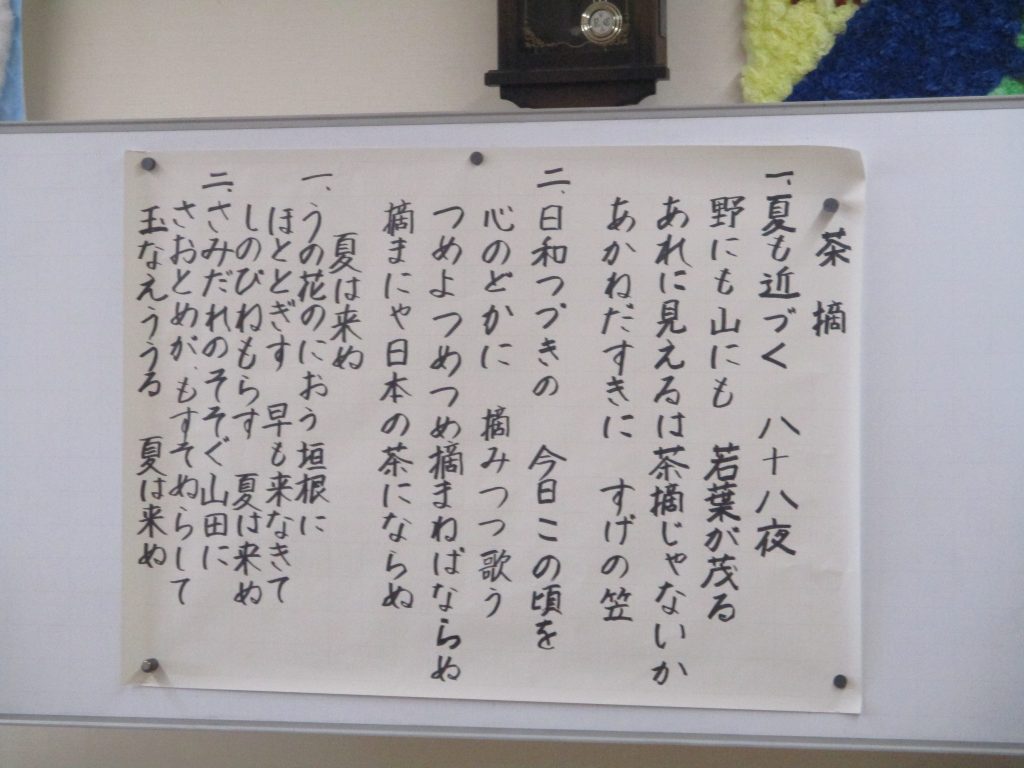 茶摘
一、夏も近づく 八十八夜
野にも山にも 若葉が茂る
あれに見えるは茶摘じゃないか
あかねだすきに すげの笠
二、日和つづきの 今日この頃を
心のどかに 摘みつつ歌う
つめよつめつめ摘まねばならぬ
摘まにゃ日本の茶にならぬ
夏は来ぬ
一、うの花のにおう垣根に
ほととぎす 早も来なきて
しのびねもらす 夏は来ぬ
二、さみだれのそそぐ山田に
さおとめが、もすそぬらして
玉なえううる 夏は来ぬ